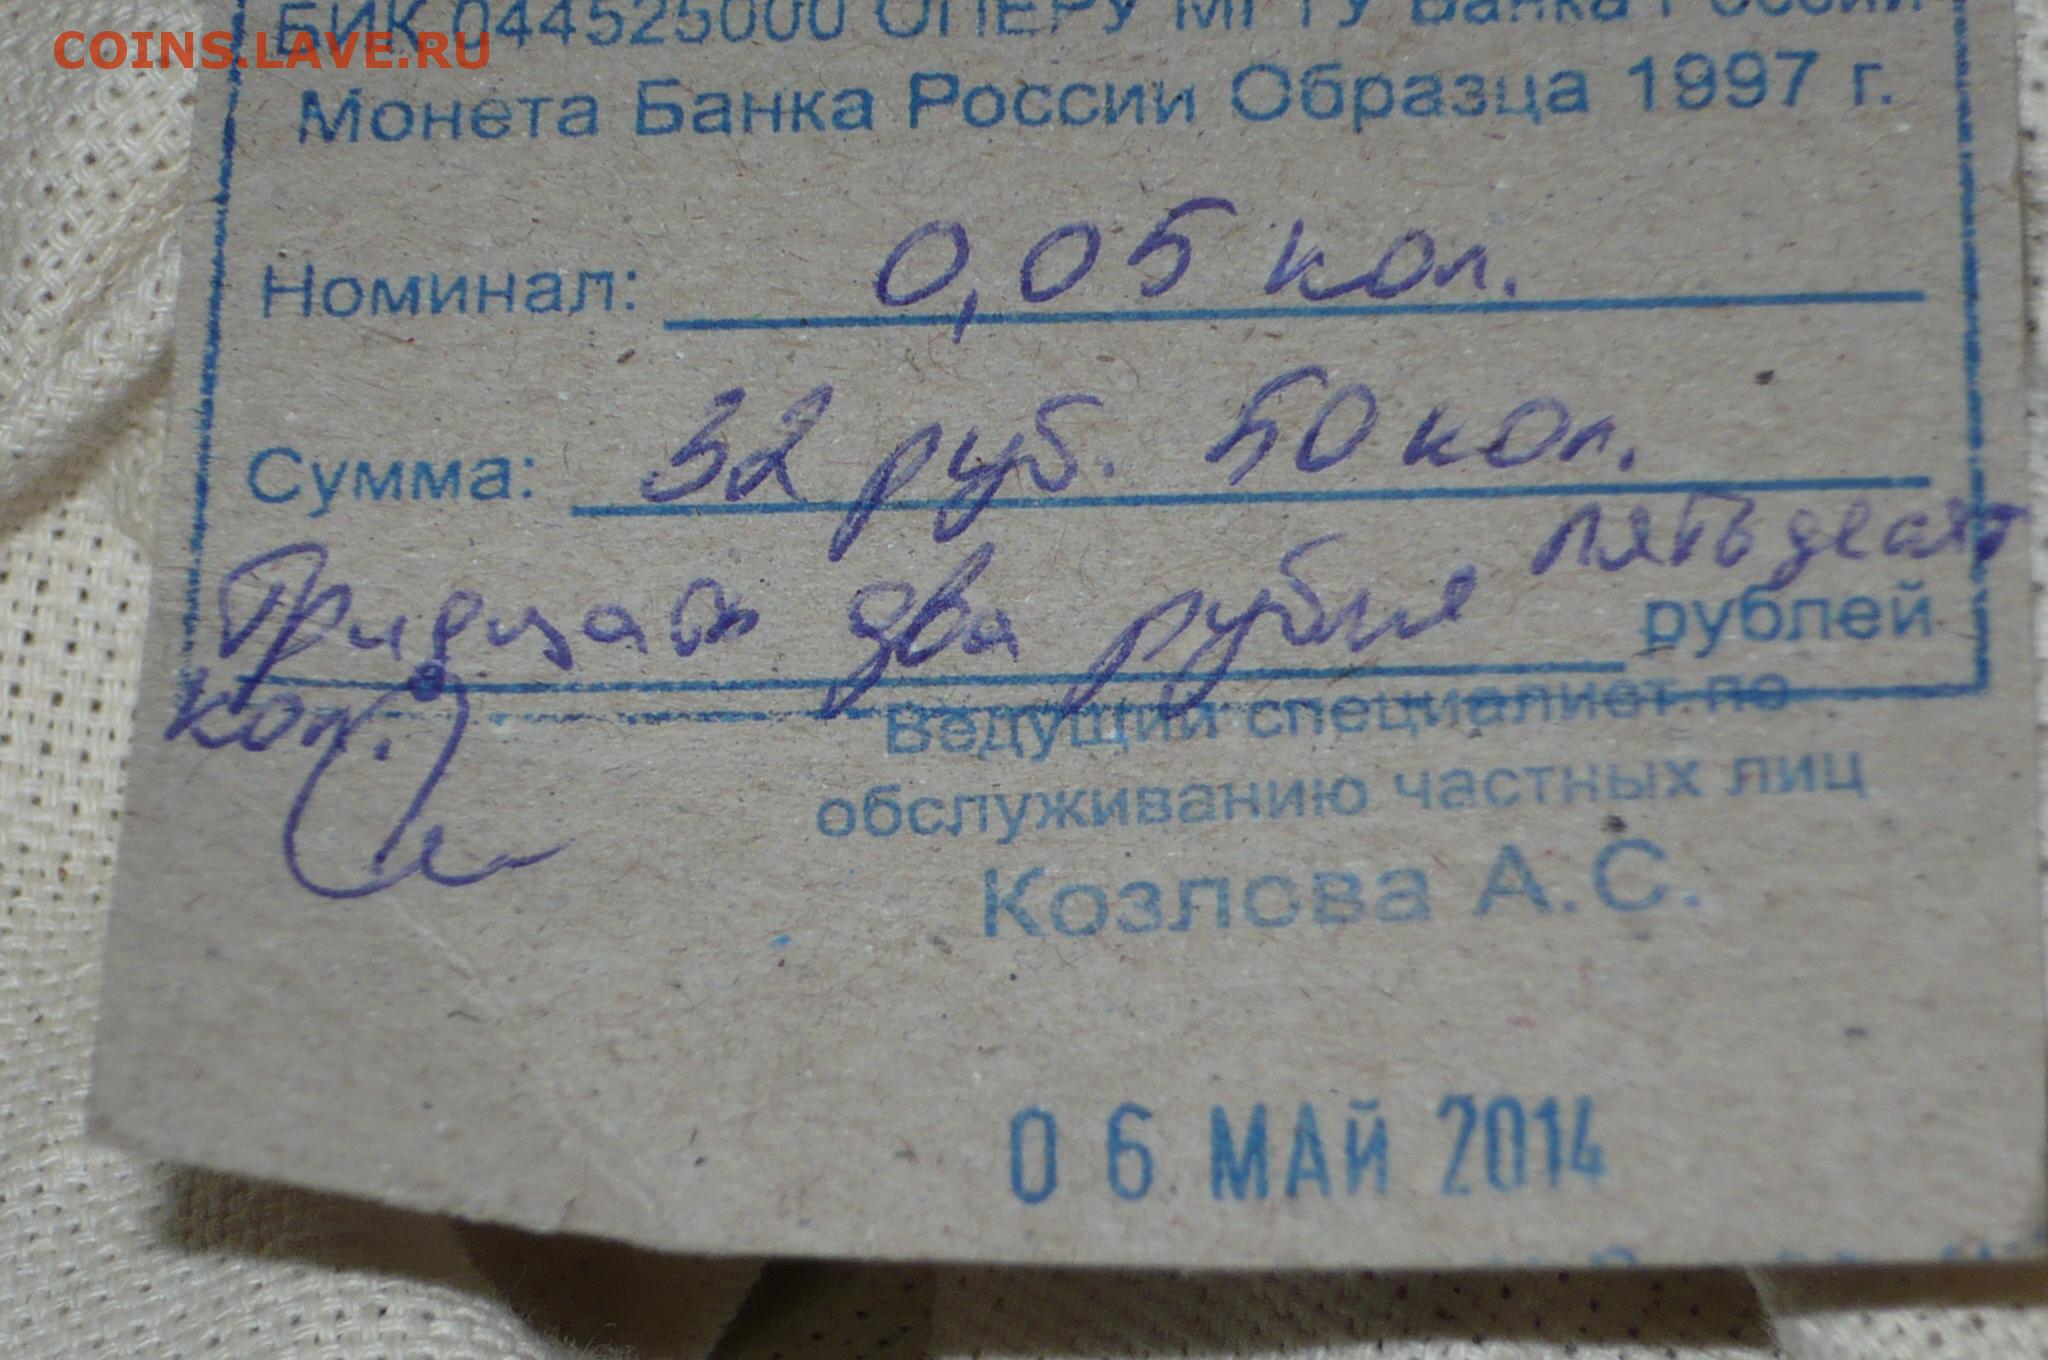 COINS.LAVE.RU
БИК 044525000 ОПЕРУ МГТУ Банка России
Монета Банка России Образца 1997 г.
Номинал: 0,05 коп.
Сумма: 32 руб. 50 коп.
Тридцать два рубля пятьдесят рублей
коп.
Ведущий специалист по
обслуживанию частных лиц
Козлова А.С.
06 МАЙ 2014